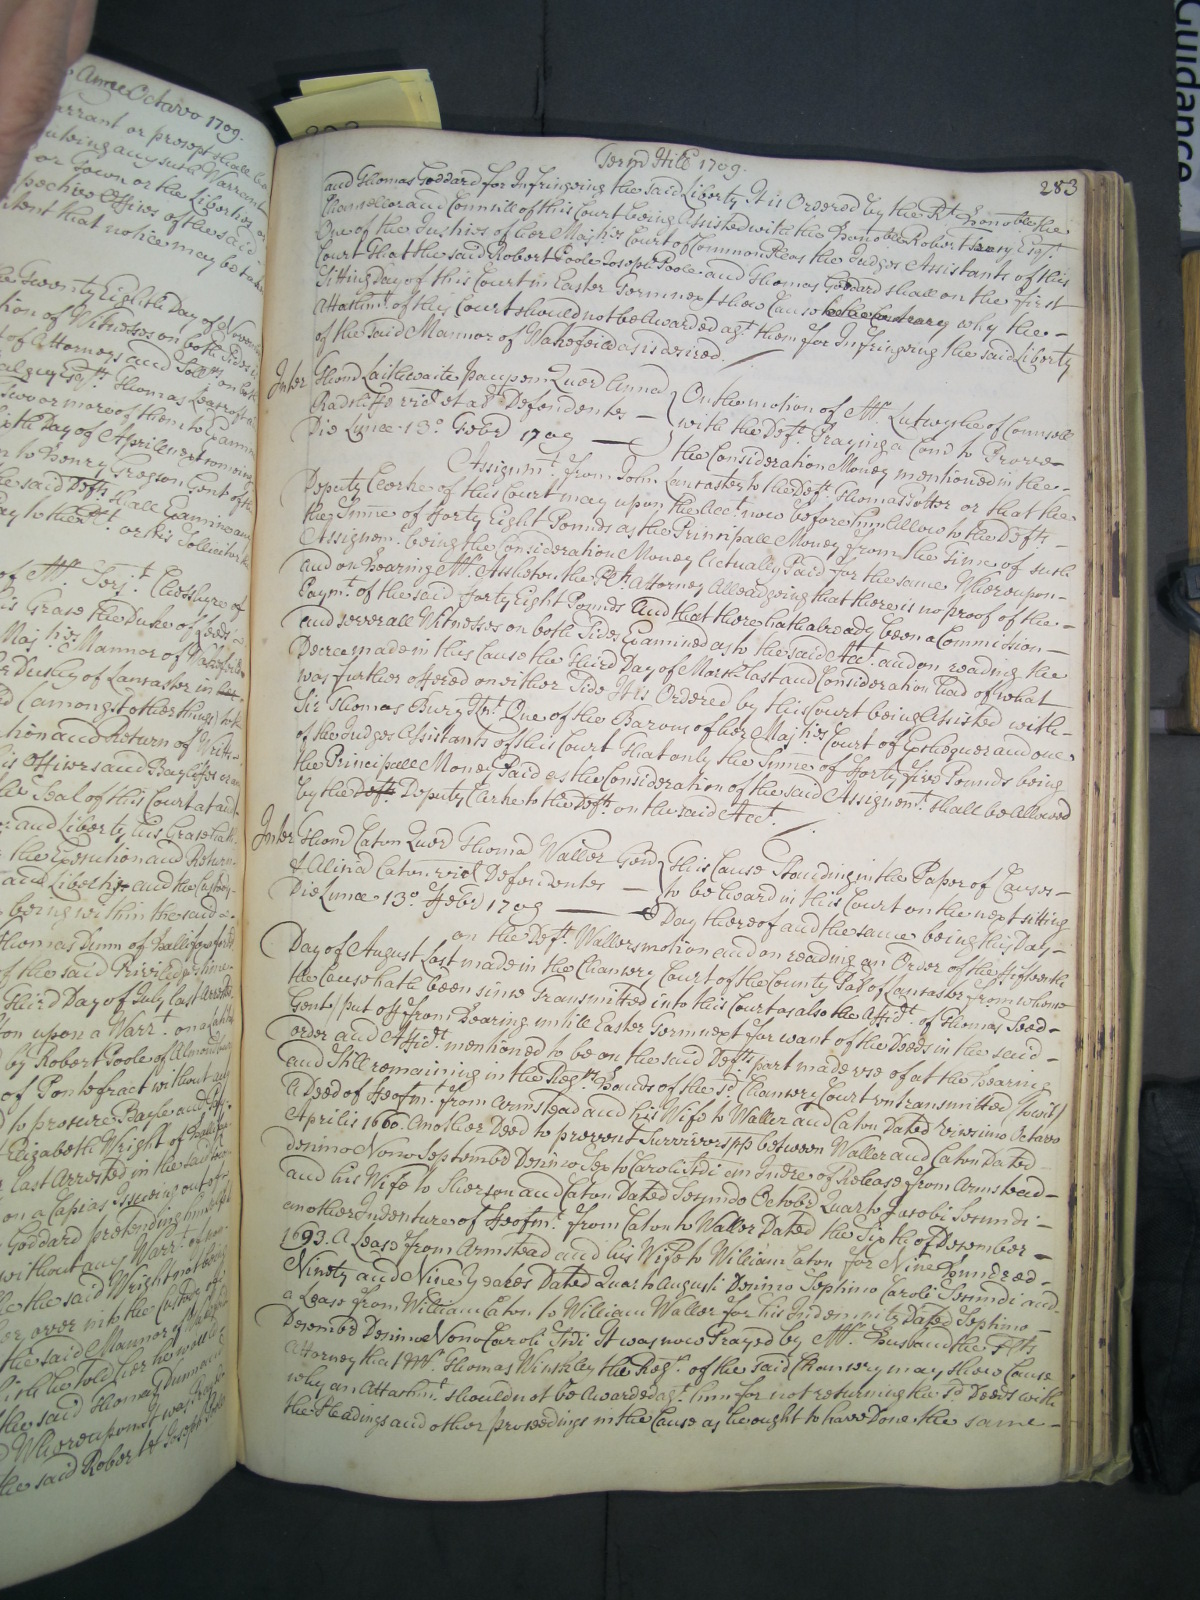 Anne Octavo 1709.
arrant or precept shall be
any such Warrant
or Town or the Liberty
Officers of the said
that notice may be
Twenty Eighth Day of Novem
tion of Witnesses on both Sides
of Attorneys and
Thomas
two or more of them to Exam
Day of Aprill next coming
to Henry Gregson Gent of the
said Defts shall Examine any
or his Sollicitor
of Mr. Serjt. Cheshyre of
his Grace the Duke of Leeds
Majties Mannor of Wakefeild
Dutchy of Lancaster in
(amongst other things)
tion and Return of Writts
his Officers and Bayliffes
the Seal of this Court
and Liberty his Grace hath
the Execution and Return
and Liberty and the Custody
being within the said
Thomas Dunn of Hallifax
of the said Priviledge
Third Day of July last Arrested
upon a Warrt. on a
by Robert Poole of
of Pontefract without any
to procure Bayle and
Elizabeth Wright of Hallifax
last Arrested in the said
on a Capias Issueing out of
Goddard pretending himself
without any Warrt.
the said Wright not being
her over into the Custody of
the said Mannor of
he told her he would
the said Thomas Dunn and
Whereupon it was
the said Robert Joseph
Term Hill 1709.
283
and Thomas Goddard for Infringeing the said Liberty It is Ordered by the Rt. Honoble the
Chancellor and Councill of this Court being Assisted with the Honoble Robert Tracy Esqr.
One of the Justices of her Majties Court of Common Pleas the Judges Assistants of this
Court That the said Robert Poole Joseph Poole and Thomas Goddard shall on the first
Sitting Day of this Court in Easter Term next shew Cause to the contrary why the -
Attachmt. of this Court should not be Awarded agt. them for Infringeing the said Liberty
of the said Mannor of Wakefeild as is desired.
Inter Thom Laithwaite Pauperm Quer Annem
Radcliffe vid et al Defendentes -
Die Lunæ 13o. Febr 1709 -
On the motion of Mr. Lutwyche of Councell
with the Deft. Praying a Comd to Prove -
the Consideration Money mentioned in the -
Assignmt. from John Lancaster to the Deft. Thomas Potter or that the
Deputy Clerke of this Court may upon the Acct. now before him Allow to the Defts. -
the Summe of Forty Eight Pounds as the Principall Money from the time of such
Assignem. being the Consideration Money Actually Paid for the same Whereupon -
and on Hearing Mr. Assheton the Plts. Attorney Alleadgeing that there is no proof of the -
Paymt. of the said Forty Eight Pounds And that there hath already been a Commission -
and severall Witnesses on both Sides Examined as to the said Acct. and on reading the
Decree made in this Cause the Third Day of March last and Consideration had of what
was further offered on either Side It is Ordered by this Court being Assisted with -
Sir Thomas Bury Knt. One of the Barons of her Majties Court of Exchequer and one
of the Judges Assistants of this Court That only the Summe of Forty five Pounds being
the Principall Money Paid as the Consideration of the said Assignemt. shall be Allowed
by the Defts. Deputy Clarke to the Deft. on the said Acct.
Inter Thom Caton Quer Thomam Waller Gen
& Aliciam Caton vid Defendentes -
Die Lunæ 13o Febr 1709 -
This Cause Standing in the Paper of Causes -
to be heard in this Court on the next sitting
Day thereof and the same being this Day -
on the Deft. Wallers motion and on reading an Order of the fifteenth
Day of August last made in the Chancery Court of the County Pal of Lancaster from whence
the Cause hath been since Transmitted into this Court as also the Affidt. of Thomas Seed -
Gent) put off from Hearing untill Easter Term next for want of the Deeds in the said -
order and Affidt. mentioned to be on the said Defts. part made use of at the Hearing
and Still remaining in the Regrs. Hands of the sd. Chancery Court untransmitted (to wit)
A Deed of Feofmt. from Armstead and his Wife to Waller and Caton Dated Vicesimo Octavo
Aprilis 1660. Another Deed to prevent Survivorspp between Waller and Caton Dated -
decimo Nono Septembr Decimo Sexto Caroli Scdi an Indre of Release from Armstead -
and his Wife to Sherson and Caton Dated Secundo Octobr Quarto Jacobi Secundi -
another Indenture of Feofmt. from Caton to Waller Dated the Sixth of December -
1693. A Lease from Armstead and his Wife to William Caton for Nine Hundred -
Ninety and Nine Yeares Dated Quarto Augusti Decimo Septimo Caroli Secundi and
a Lease from William Caton to William Waller for his Indemnity Dated Septimo -
Decembr Decimo Nono Caroli Scdi It was now Prayed by Mr. Husband the Plts
Attorney that Mr. Thomas Winckley the Regr. of the said Chancery may shew Cause
why an Attachmt. should not be Awarded agt. him for not returning the sd Deeds with
the Pleadings and other proceedings in the Cause as he ought to have Done the same -
Guidance